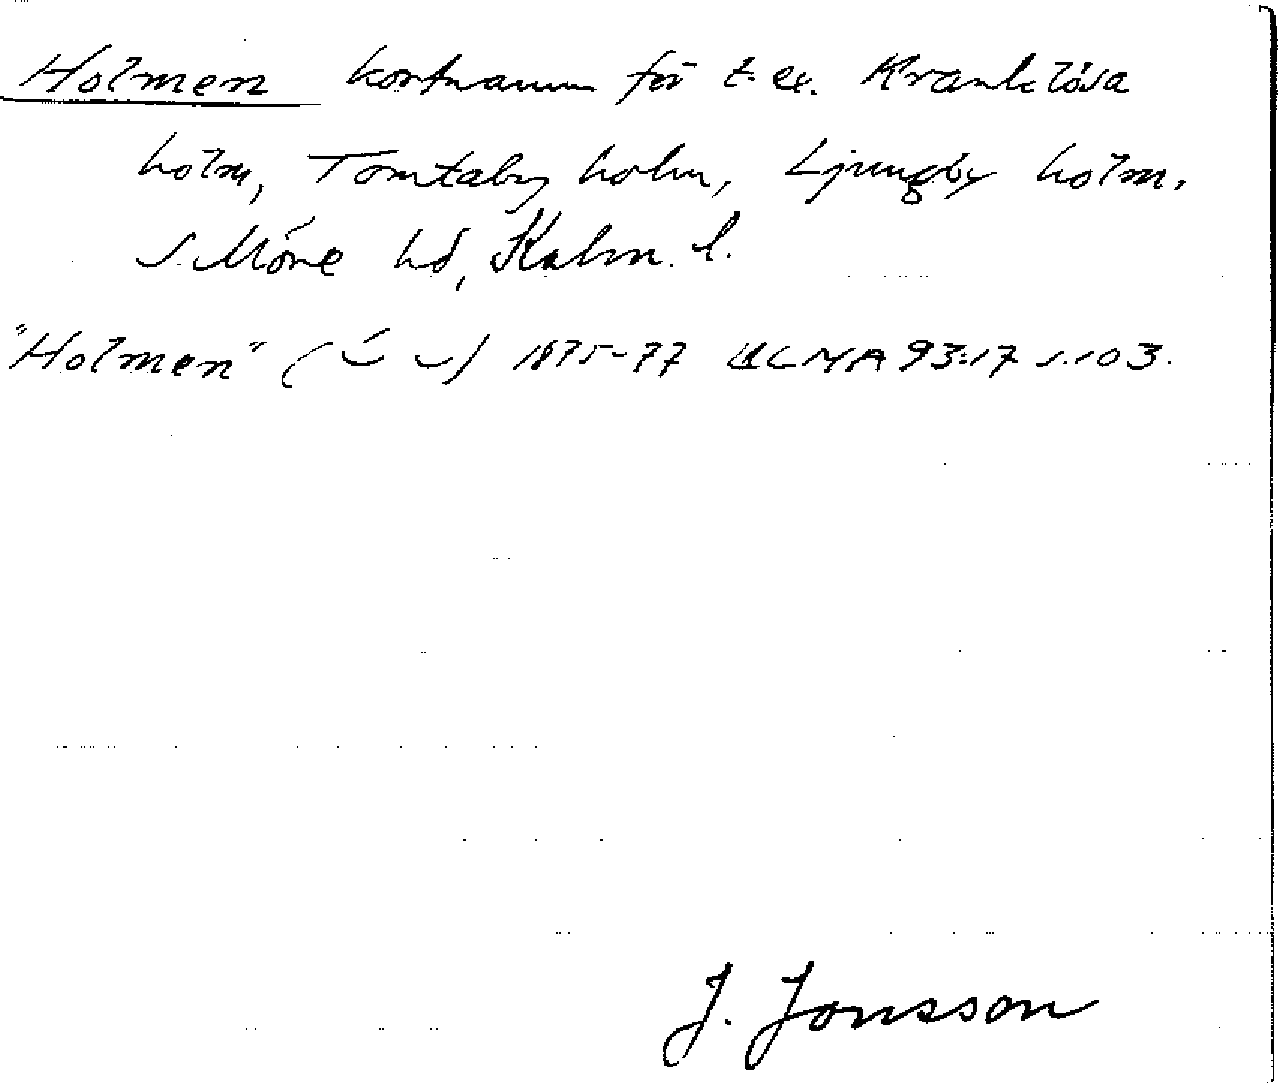 Holmen kortnamn för t. ex. Kranklösa
holm, Tomtaby holm, Ljungby holm.
S. Möre hd, Kalm. l.
"Holmen" (´ ˘ ˘) 1875-77 ULMA 93:17 s. 103.
J. Jonsson